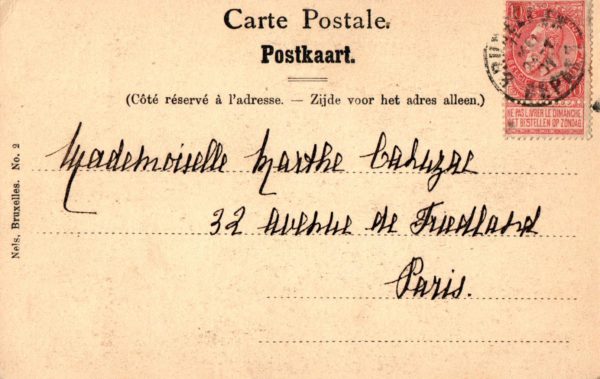 Carte Postale.
Postkaart.
(Côté réservé à l'adresse. — Zijde voor het adres alleen.)
NE PAS LIVRER LE DIMANCHE
NIET BESTELLEN OP ZONDAG
Mademoiselle Marthe Cahuzac
32 avenue de Friedland
Paris.
Nels, Bruxelles. No. 2